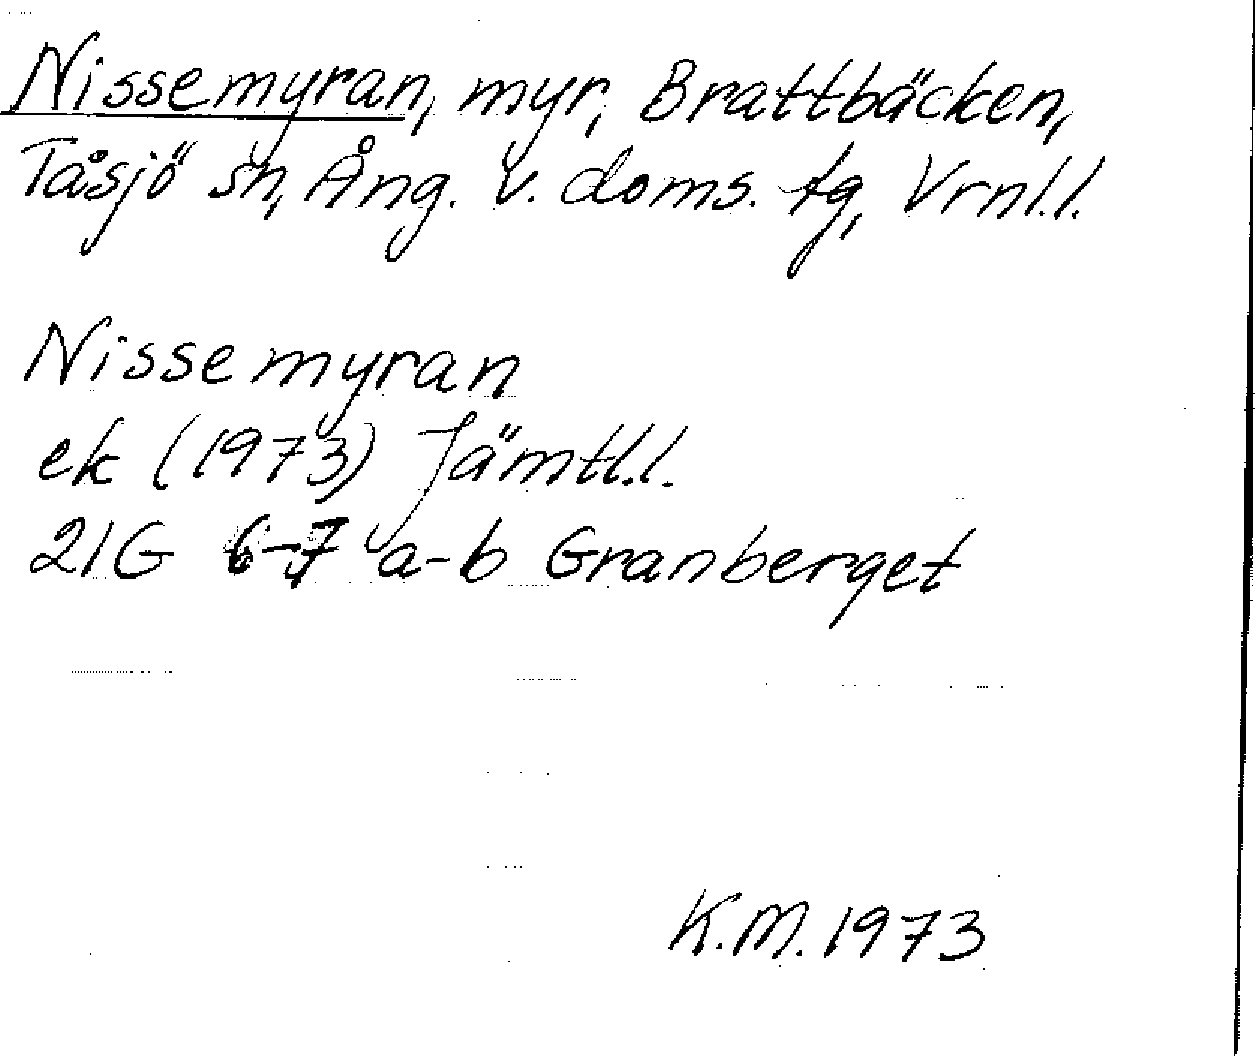 Nissemyran, myr, Brattbäcken,
Tåsjö sn, Ång. v. doms. tg, Vrnl.l.
Nissemyran
ek (1973) Jämtl.l.
21G 6-7 a-b Granberget
K.M. 1973